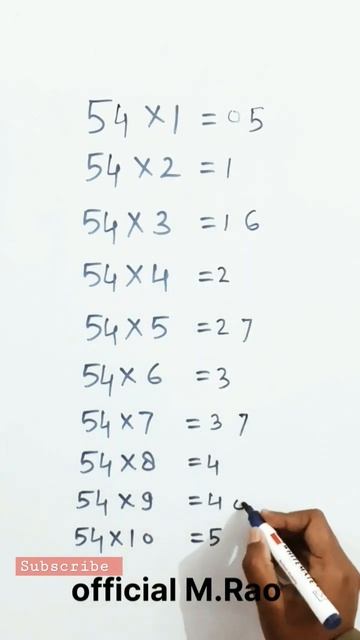 54 × 1 = 05
54 × 2 = 1
54 × 3 = 1 6
54 × 4 = 2
54 × 5 = 2 7
54 × 6 = 3
54 × 7 = 3 7
54 × 8 = 4
54 × 9 = 4
54 × 10 = 5
Subscribe
official M.Rao